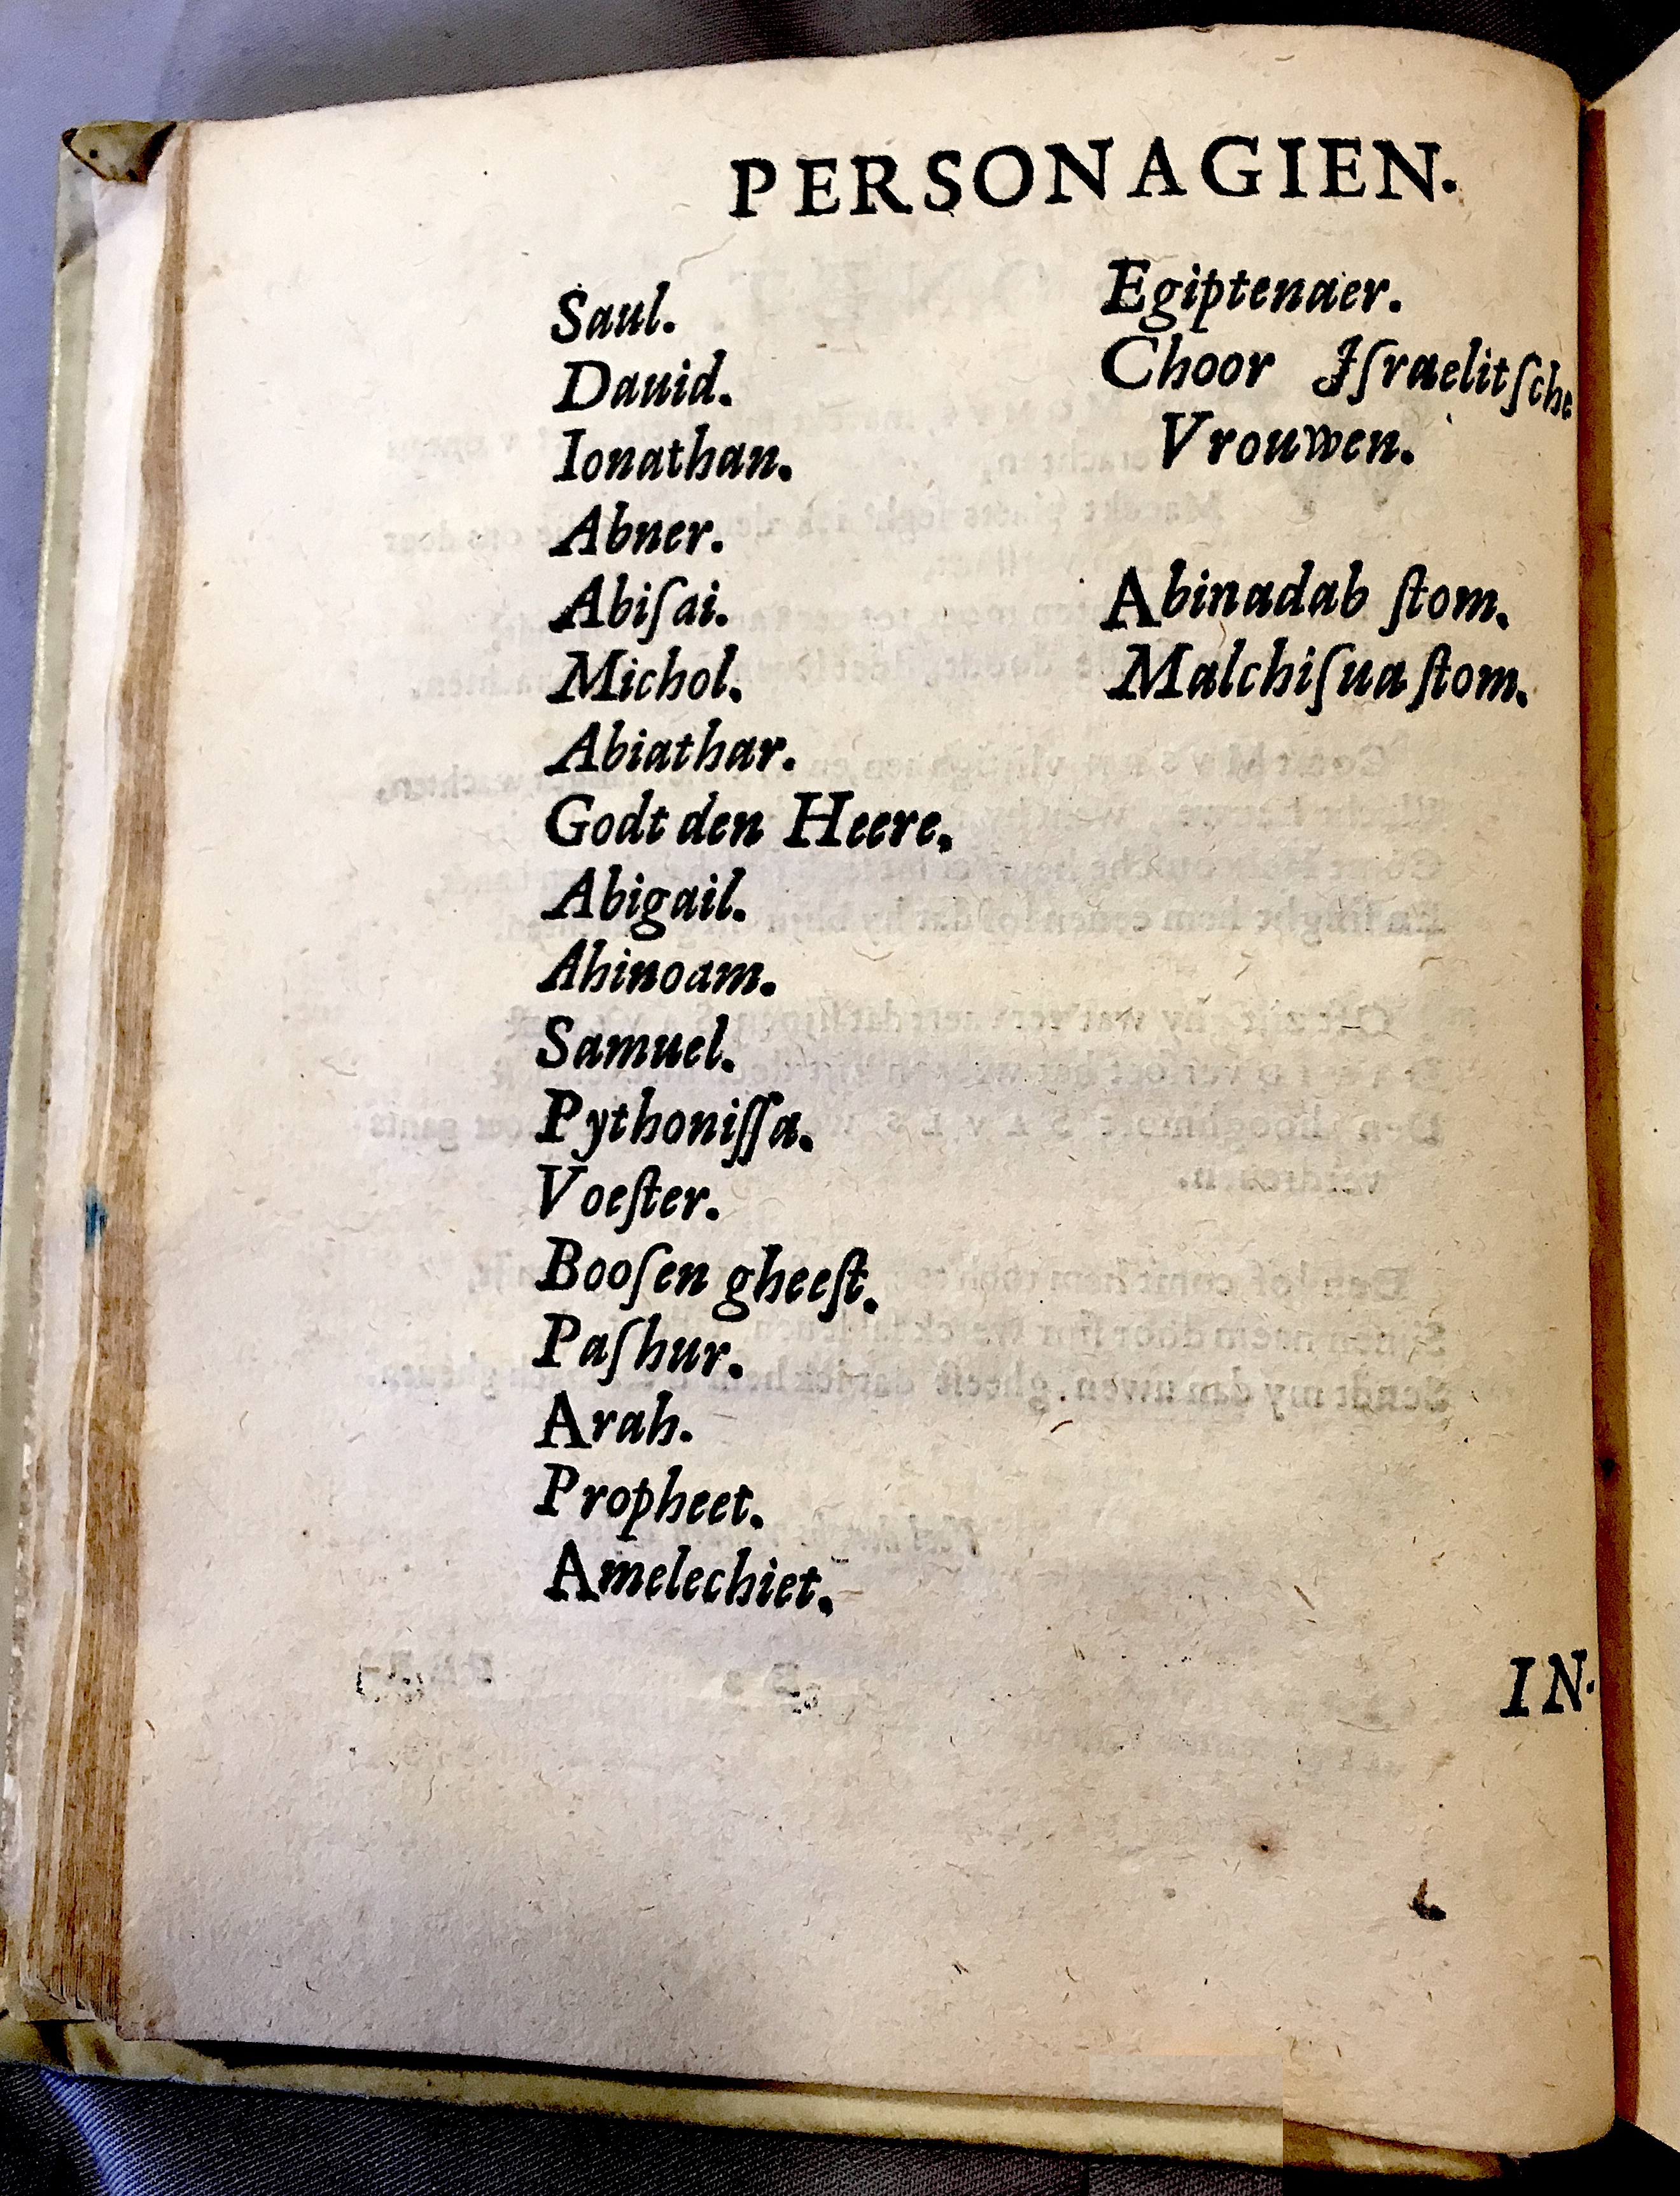 PERSONAGIEN.
Saul.
Dauid.
Ionathan.
Abner.
Abiſai.
Michol.
Abiathar.
Godt den Heere.
Abigail.
Ahinoam.
Samuel.
Pythoniſſa.
Voeſter.
Booſen gheeſt.
Paſhur.
Arah.
Propheet.
Amelechiet.
Egiptenaer.
Choor Iſraelitſche
Vrouwen.
Abinadab ſtom.
Malchiſua ſtom.
IN-